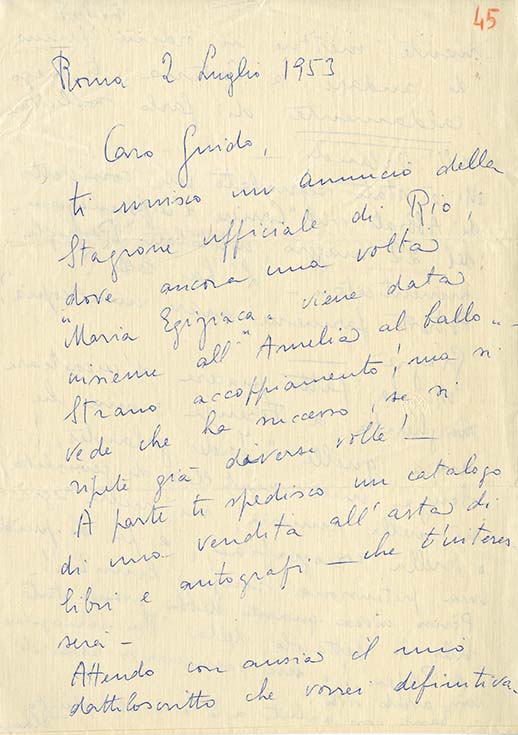 45
Roma 2 Luglio 1953
Caro Guido,
ti unisco un annuncio della
Stagione ufficiale di Rio,
dove ancora una volta
"Maria Egiziaca" viene data
insieme all' "Amelia al ballo" -
Strano accoppiamento, ma si
vede che ha successo, se si
ripete già diverse volte! -
A parte ti spedisco un catalogo
di una vendita all'asta di
libri e autografi - che t'interes
serà -
Attendo con ansia il mio
dattiloscritto che vorrei definitiva-